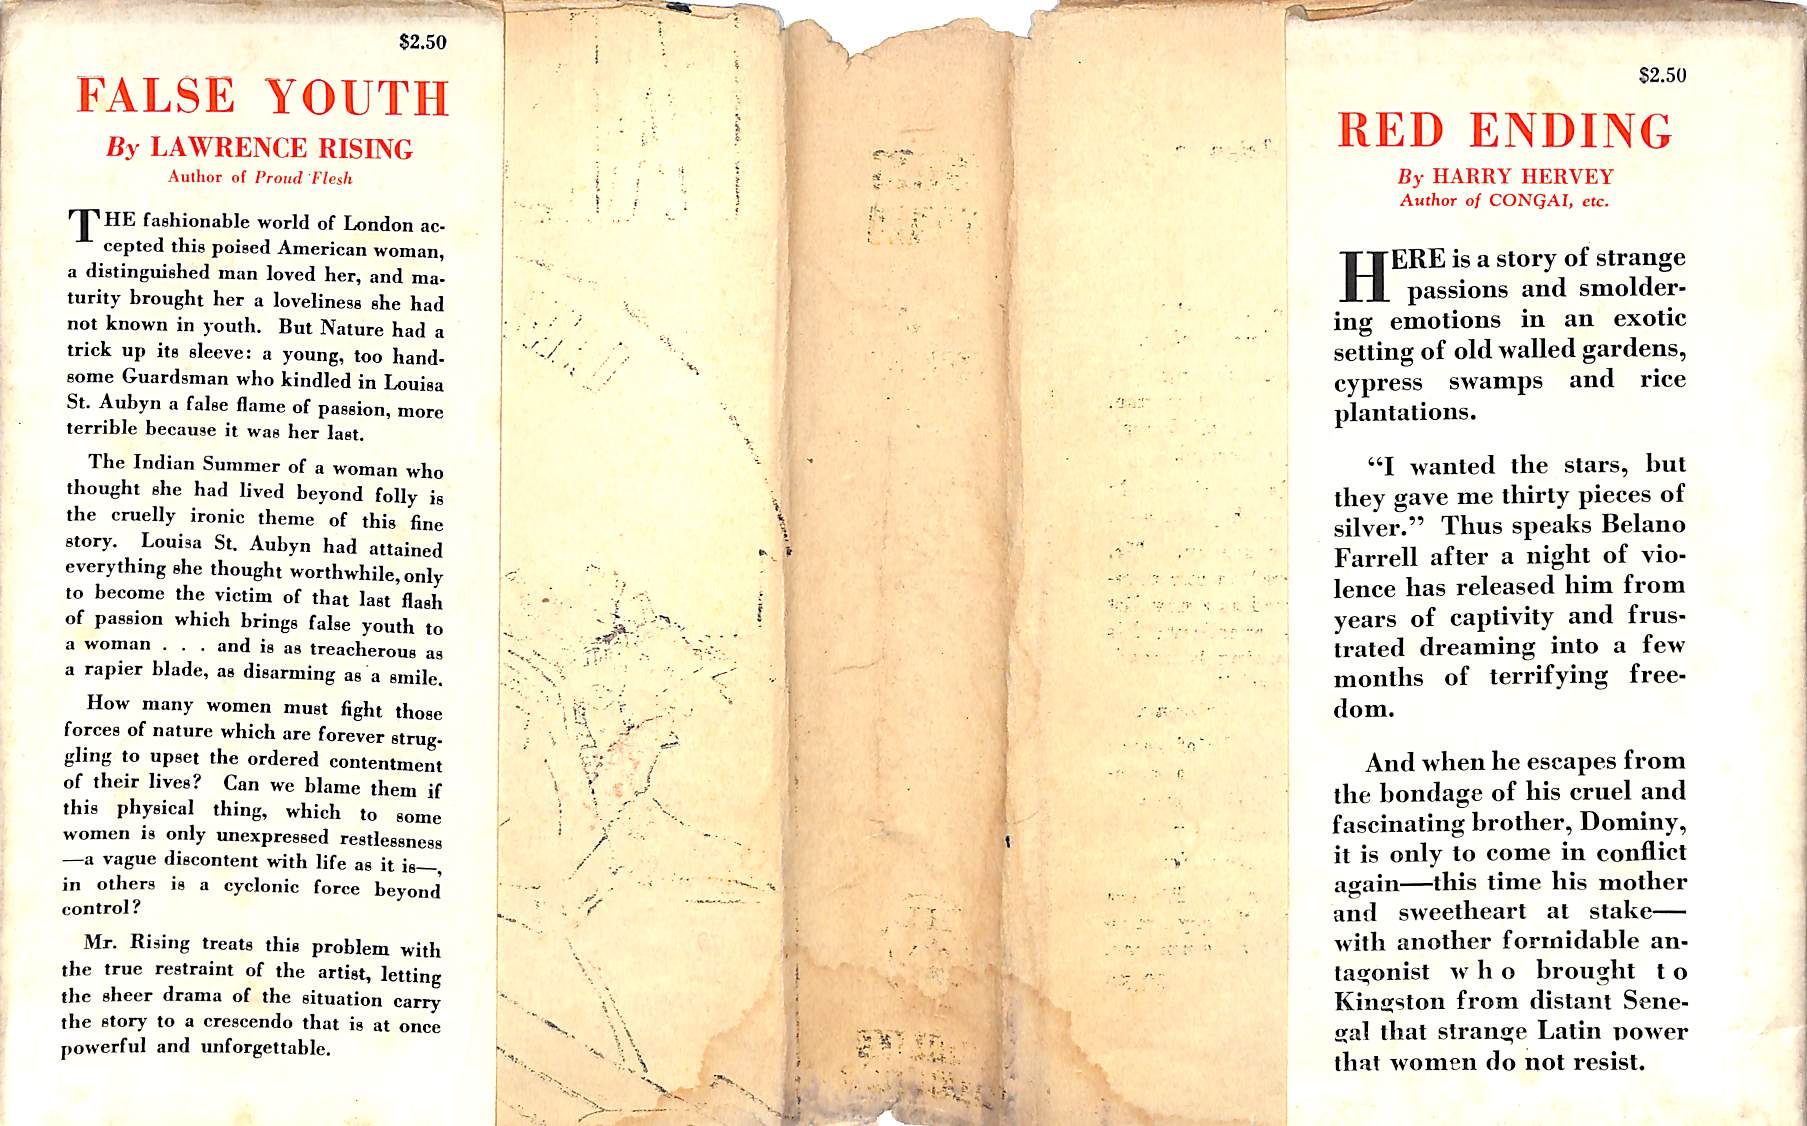 $2.50
FALSE YOUTH
By LAWRENCE RISING
Author of Proud Flesh
THE fashionable world of London ac-
cepted this poised American woman,
a distinguished man loved her, and ma-
turity brought her a loveliness she had
not known in youth. But Nature had a
trick up its sleeve: a young, too hand-
some Guardsman who kindled in Louisa
St. Aubyn a false flame of passion, more
terrible because it was her last.
The Indian Summer of a woman who
thought she had lived beyond folly is
the cruelly ironic theme of this fine
story. Louisa St. Aubyn had attained
everything she thought worthwhile, only
to become the victim of that last flash
of passion which brings false youth to
a woman . . . and is as treacherous as
a rapier blade, as disarming as a smile.
How many women must fight those
forces of nature which are forever strug-
gling to upset the ordered contentment
of their lives? Can we blame them if
this physical thing, which to some
women is only unexpressed restlessness
—a vague discontent with life as it is—,
in others is a cyclonic force beyond
control?
Mr. Rising treats this problem with
the true restraint of the artist, letting
the sheer drama of the situation carry
the story to a crescendo that is at once
powerful and unforgettable.
$2.50
RED ENDING
By HARRY HERVEY
Author of CONGAI, etc.
HERE is a story of strange
passions and smolder-
ing emotions in an exotic
setting of old walled gardens,
cypress swamps and rice
plantations.
“I wanted the stars, but
they gave me thirty pieces of
silver.” Thus speaks Belano
Farrell after a night of vio-
lence has released him from
years of captivity and frus-
trated dreaming into a few
months of terrifying free-
dom.
And when he escapes from
the bondage of his cruel and
fascinating brother, Dominy,
it is only to come in conflict
again—this time his mother
and sweetheart at stake—
with another formidable an-
tagonist who brought to
Kingston from distant Sene-
gal that strange Latin power
that women do not resist.